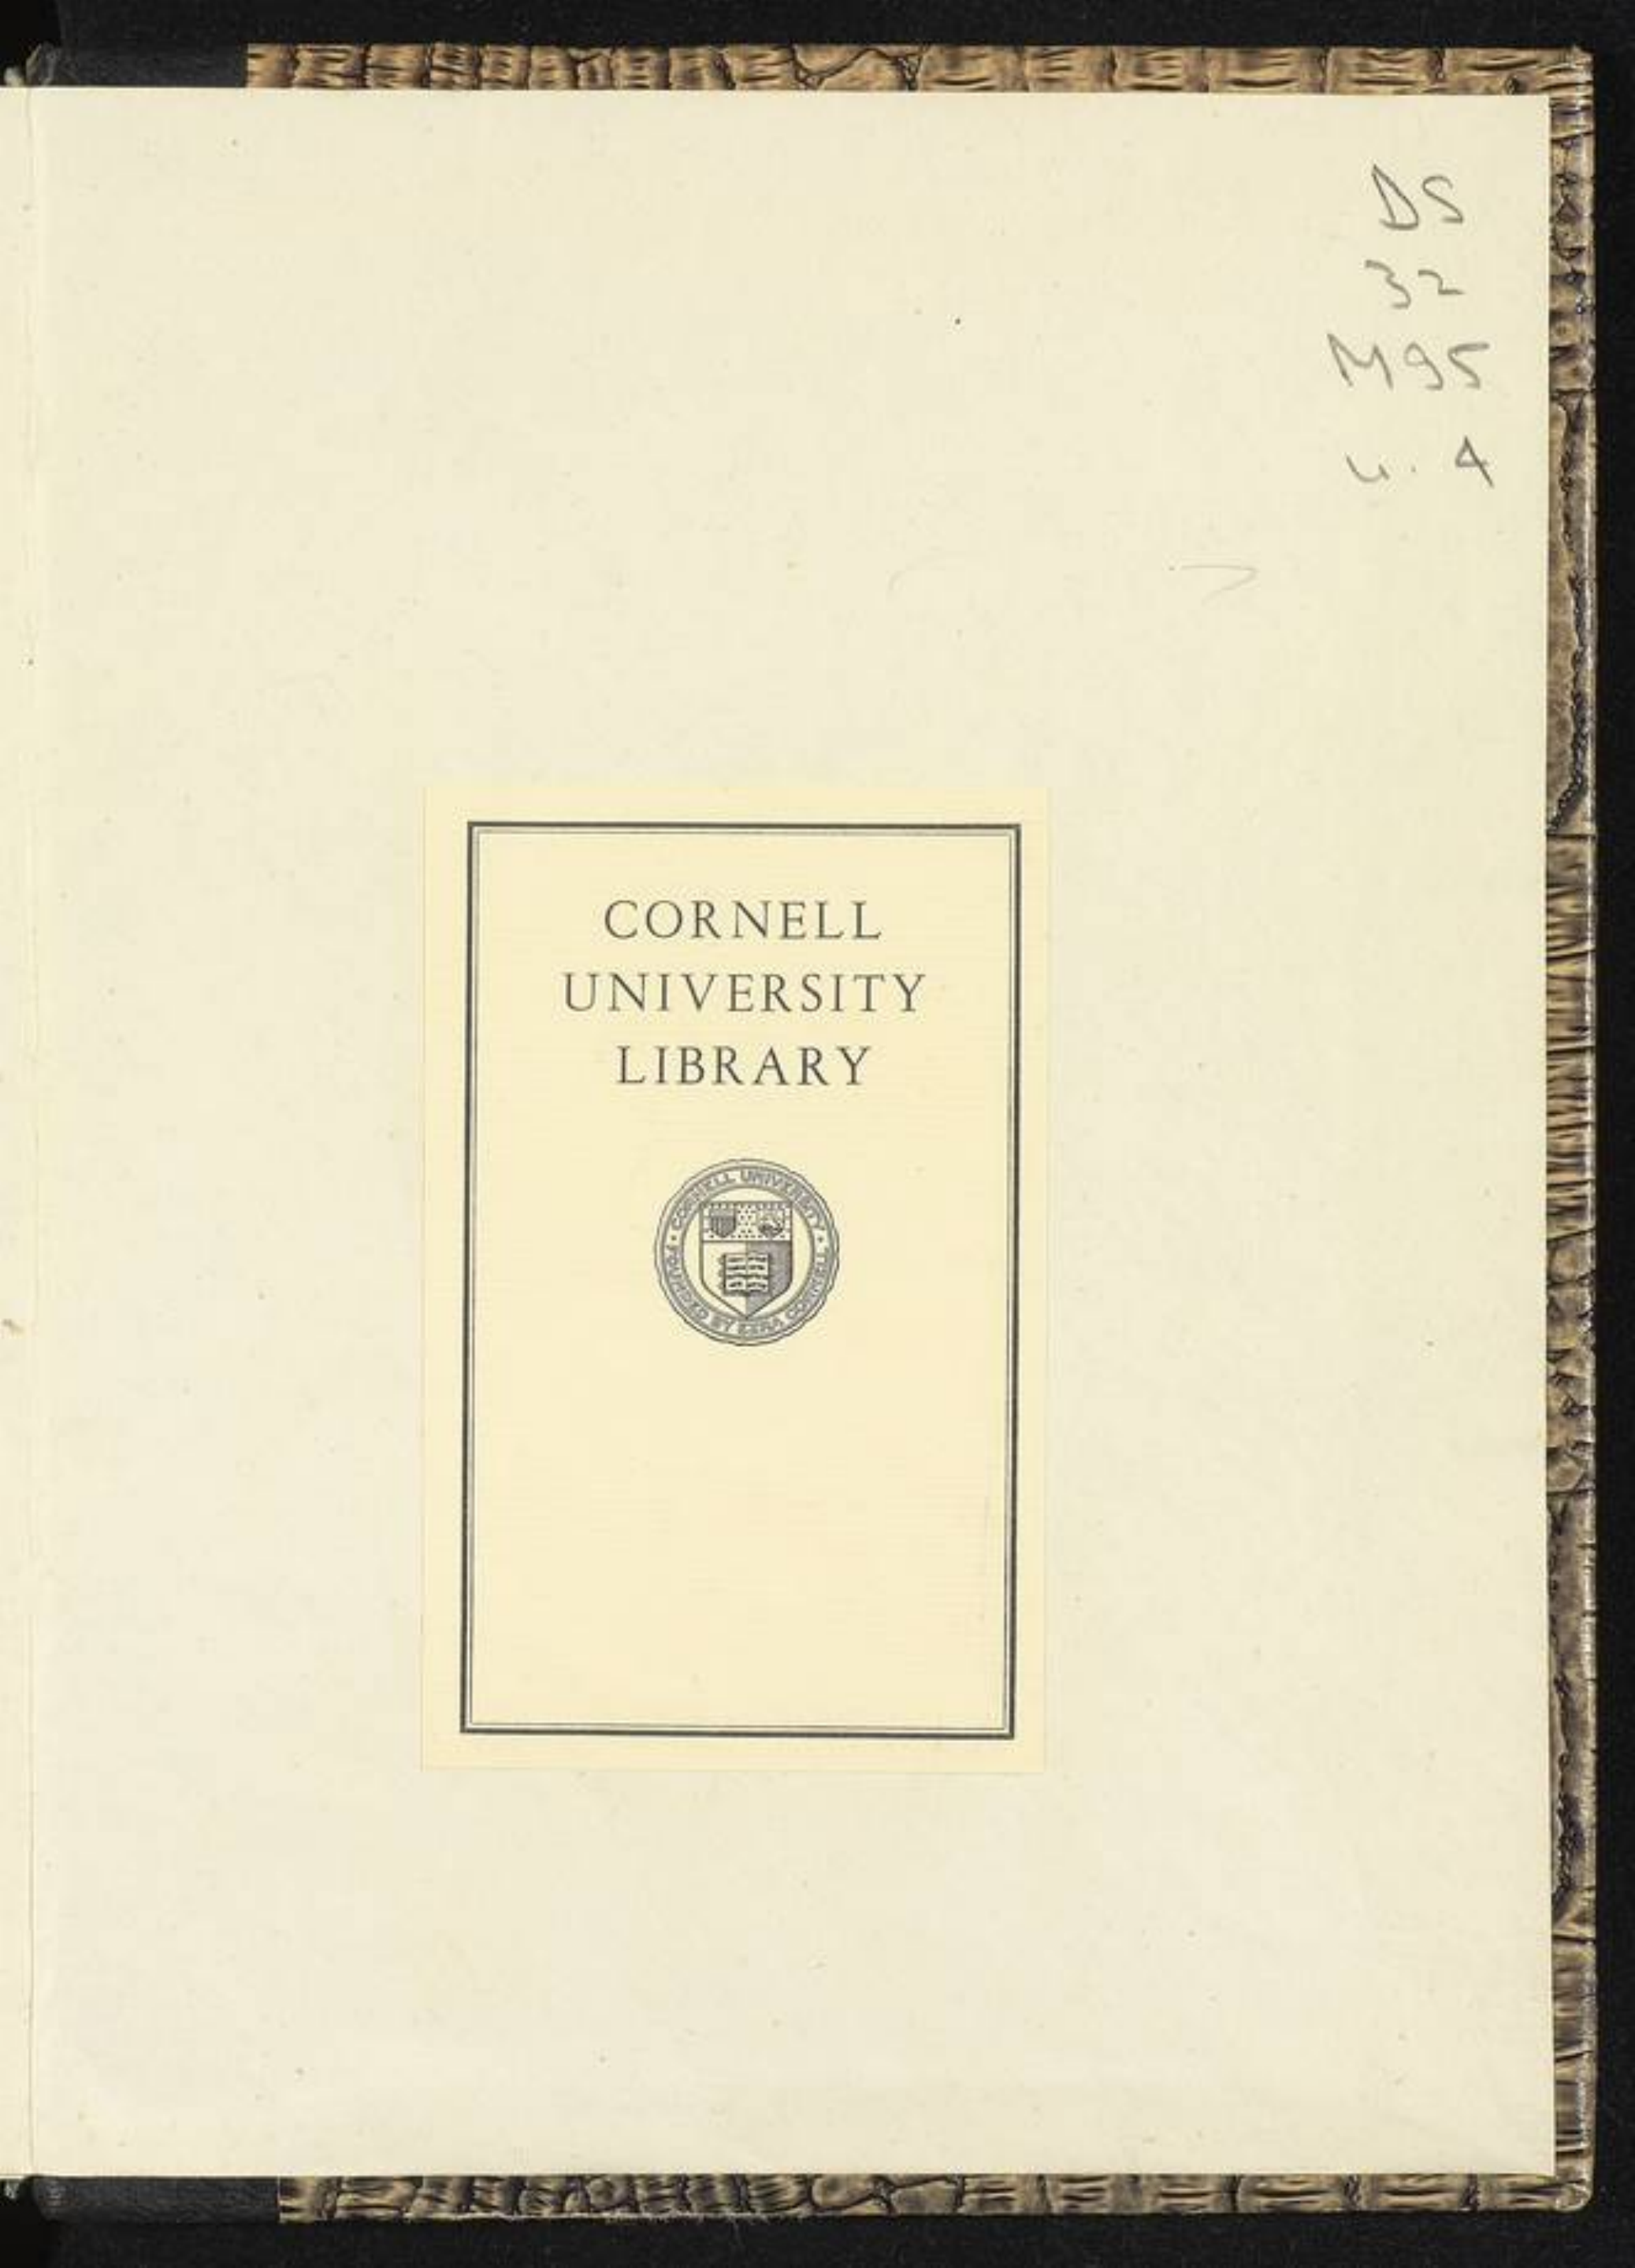 DS
32
M95
v. 4
CORNELL
UNIVERSITY
LIBRARY
CORNELL UNIVERSITY
FOUNDED BY EZRA CORNELL